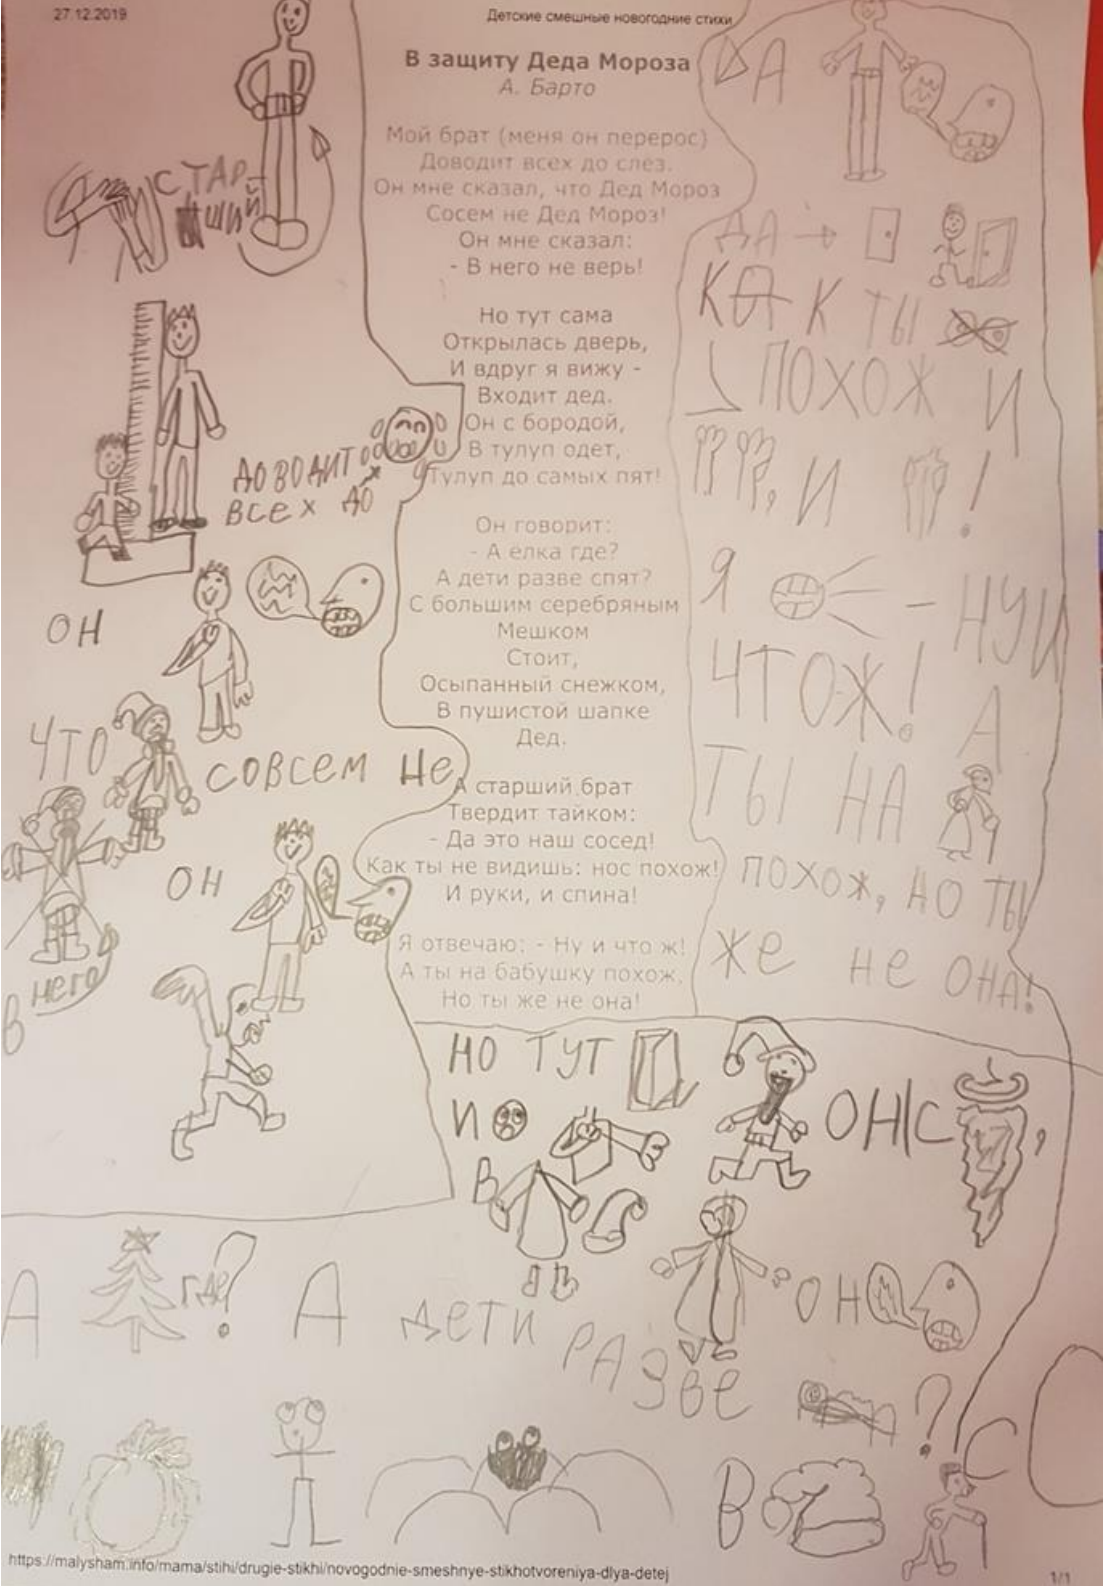 27.12.2019
Детские смешные новогодние стихи
В защиту Деда Мороза
А. Барто
Мой брат (меня он перерос)
Доводит всех до слез.
Он мне сказал, что Дед Мороз
Сосем не Дед Мороз!
Он мне сказал:
- В него не верь!
Но тут сама
Открылась дверь,
И вдруг я вижу -
Входит дед.
Он с бородой,
В тулуп одет,
Тулуп до самых пят!
Он говорит:
- А елка где?
А дети разве спят?
С большим серебряным
Мешком
Стоит,
Осыпанный снежком,
В пушистой шапке
Дед.
А старший брат
Твердит тайком:
- Да это наш сосед!
Как ты не видишь: нос похож!
И руки, и спина!
Я отвечаю: - Ну и что ж!
А ты на бабушку похож,
Но ты же не она!
СТАР-
ШИЙ
ДОВОДИТ
ВСЕХ ДО
ОН
ЧТО
СОВСЕМ НЕ
ОН
В НЕГО
НО ТУТ
И
ОН С ,
В
ОН
А ГДЕ? А ДЕТИ
РАЗВЕ ?
С
В
А
ДА →
КАК ТЫ
ПОХОЖ И
, И !
Я - НУ И
ЧТО Ж! А
ТЫ НА
ПОХОЖ, НО ТЫ
ЖЕ НЕ ОНА!
https://malysham.info/mama/stihi/drugie-stikhi/novogodnie-smeshnye-stikhotvoreniya-dlya-detej
1/1